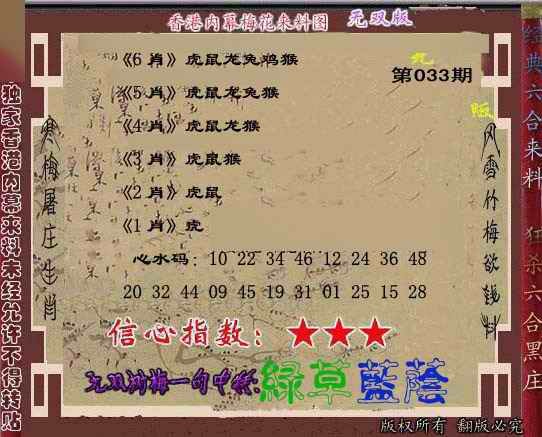 香港内幕梅花来料图 无双版
《6 肖》虎鼠龙兔鸡猴
第033期
《5 肖》虎鼠龙兔猴
《4 肖》虎鼠龙猴
《3 肖》虎鼠猴
《2 肖》虎鼠
《1 肖》虎
心水码：10 22 34 46 12 24 36 48
20 32 44 09 45 19 31 01 25 15 28
信心指数：★★★
绿草蓝荫
独家香港内幕来料未经允许不得转贴
寒梅屠庄生肖
风雪竹梅欲钱料
经典六合来料 狂杀六合黑庄
版权所有 翻版必究